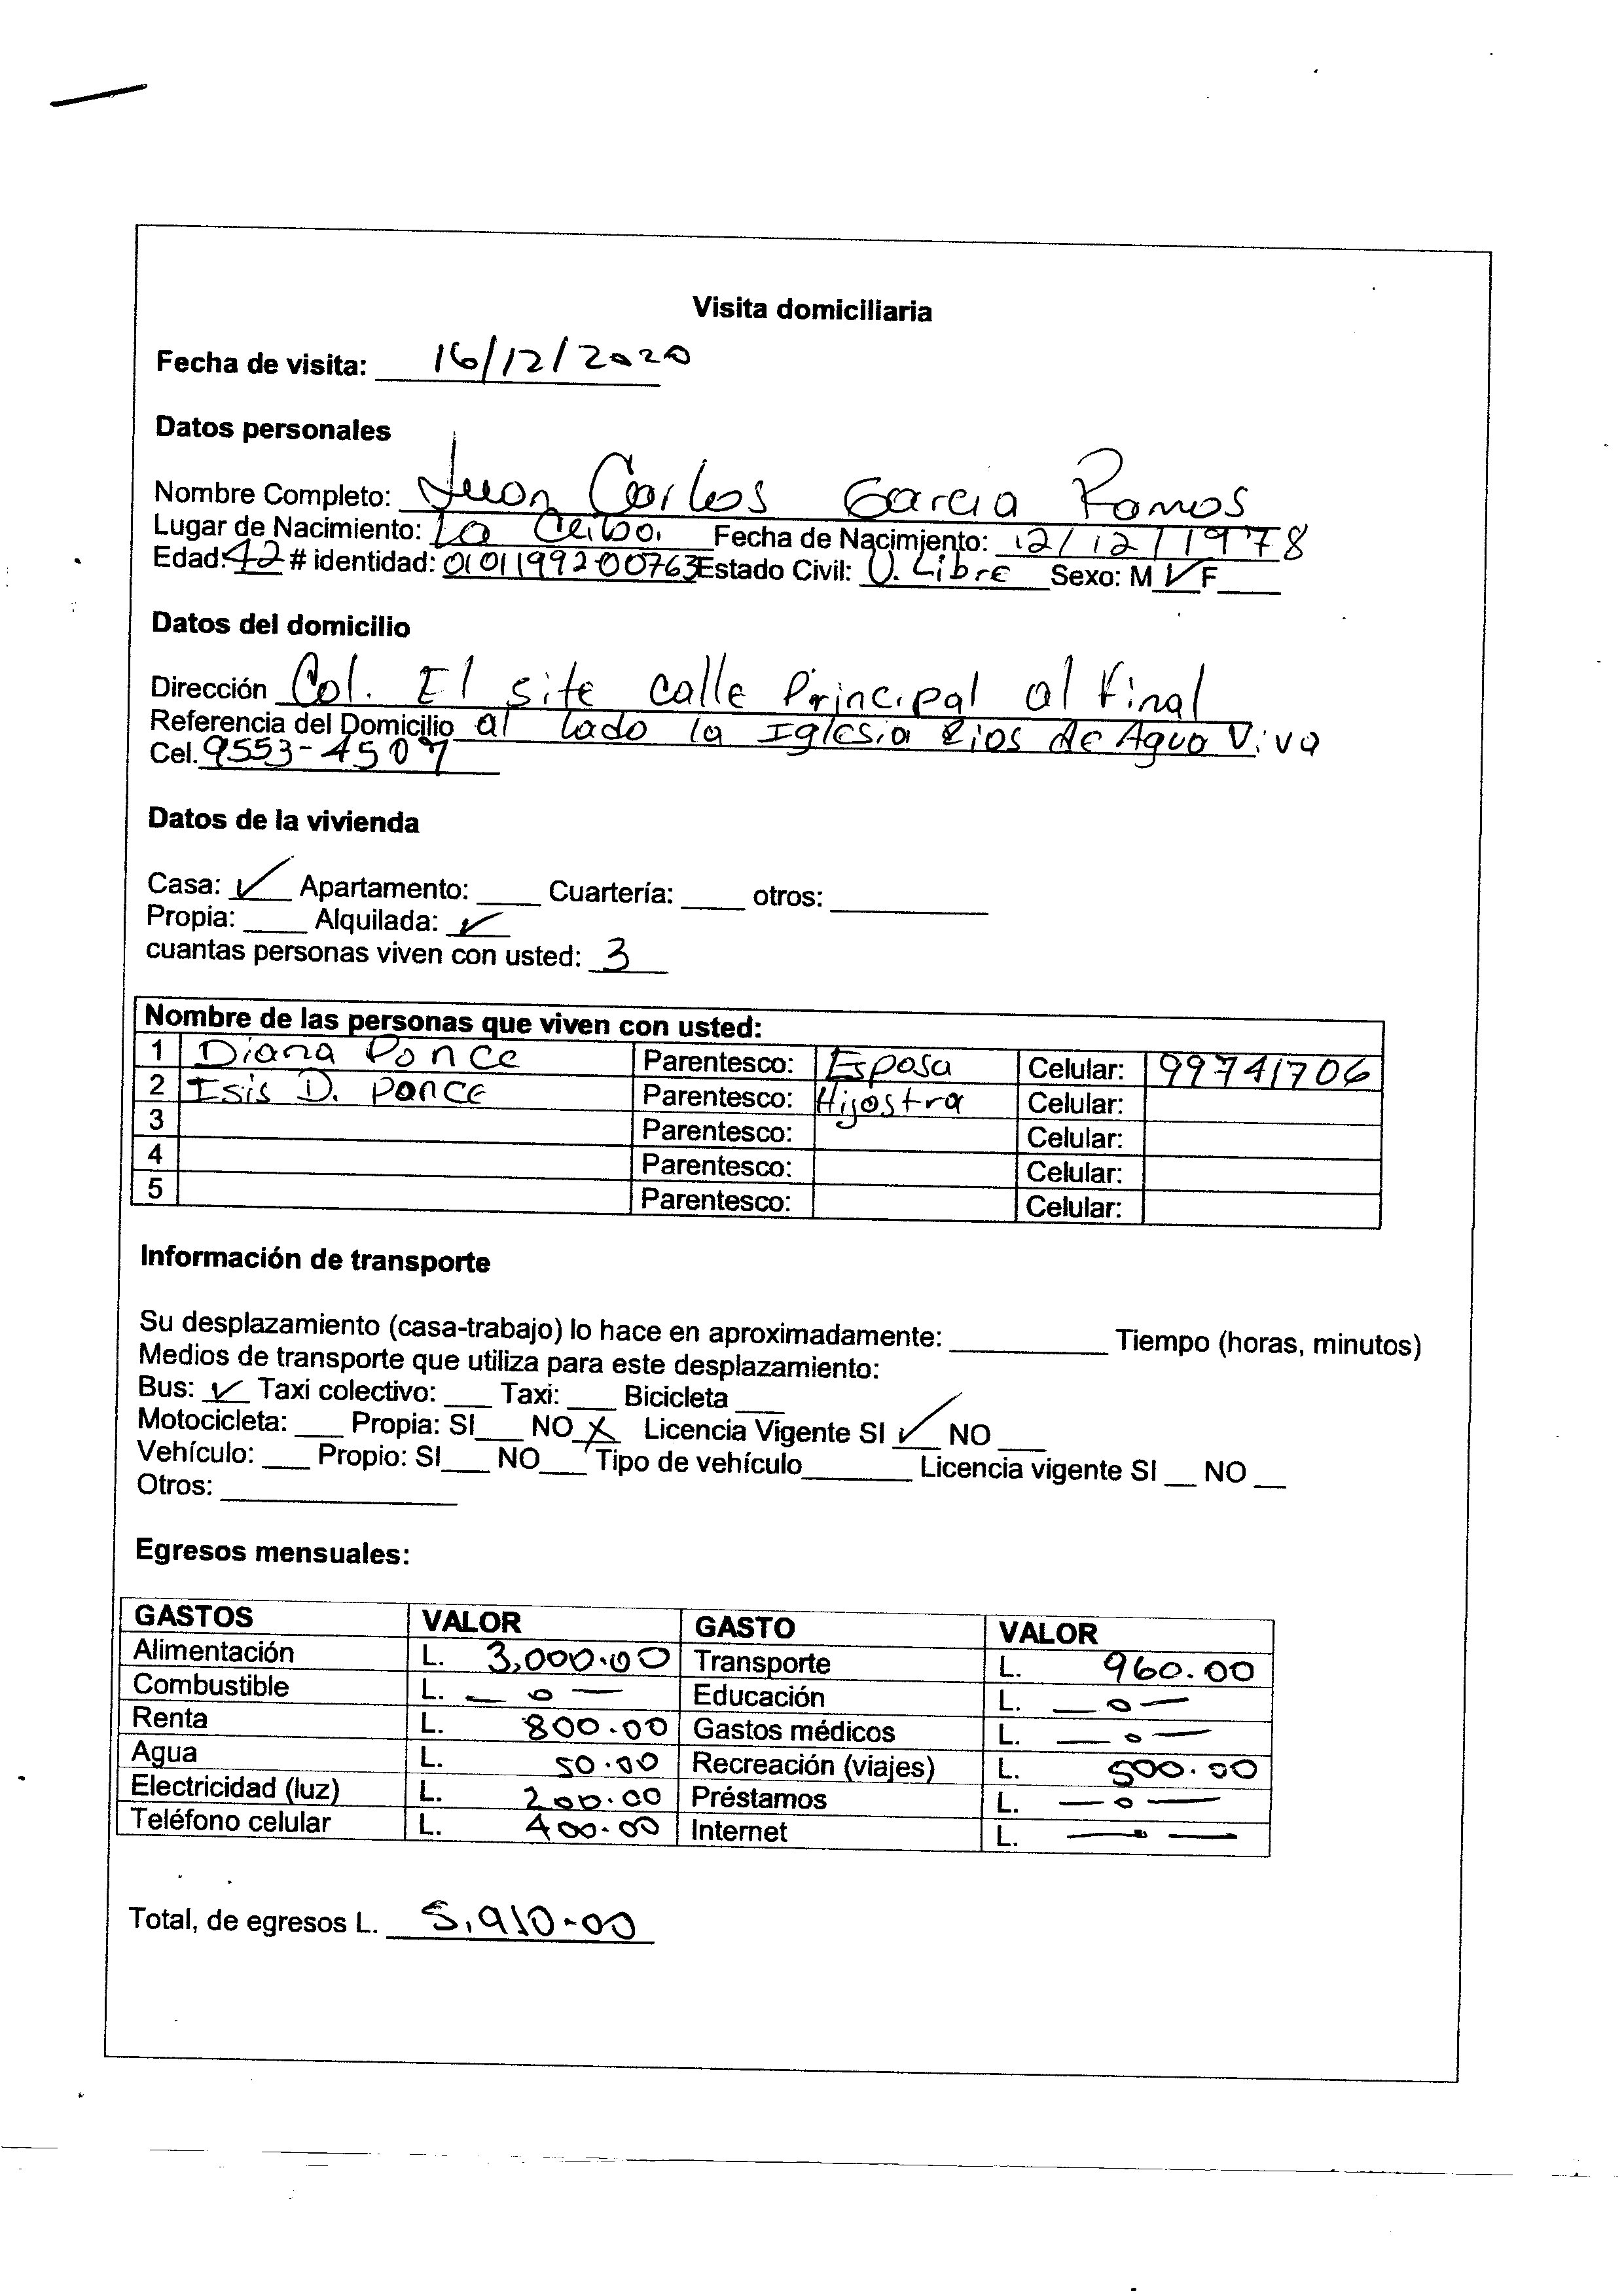 Visita domiciliaria
Fecha de visita: 16/12/2020
Datos personales
Nombre Completo: Juan Carlos Garcia Ramos
Lugar de Nacimiento: La Ceiba. Fecha de Nacimiento: 12/12/1978
Edad: 42 # identidad: 0101199200763 Estado Civil: U. Libre Sexo: M ✓ F ____
Datos del domicilio
Dirección Col. El site calle Principal al Final
Referencia del Domicilio al lado la Iglesia Rios de Agua Viva
Cel. 9553-4507
Datos de la vivienda
Casa: ✓ Apartamento: ____ Cuartería: ____ otros: __________
Propia: ____ Alquilada: ✓
cuantas personas viven con usted: 3
Nombre de las personas que viven con usted:
1 Diana Ponce Parentesco: Esposa Celular: 99741706
2 Isis D. Ponce Parentesco: Hijastra Celular:
3 Parentesco: Celular:
4 Parentesco: Celular:
5 Parentesco: Celular:
Información de transporte
Su desplazamiento (casa-trabajo) lo hace en aproximadamente: __________ Tiempo (horas, minutos)
Medios de transporte que utiliza para este desplazamiento:
Bus: ✓ Taxi colectivo: ___ Taxi: ___ Bicicleta ___
Motocicleta: ___ Propia: SI___ NO X Licencia Vigente SI ✓ NO ___
Vehículo: ___ Propio: SI___ NO___ Tipo de vehículo_______ Licencia vigente SI __ NO __
Otros: _______________
Egresos mensuales:
GASTOS VALOR GASTO VALOR
Alimentación L. 3,000.00 Transporte L. 960.00
Combustible L. — 0 — Educación L. — 0 —
Renta L. 800.00 Gastos médicos L. — 0 —
Agua L. 50.00 Recreación (viajes) L. 500.00
Electricidad (luz) L. 200.00 Préstamos L. — 0 —
Teléfono celular L. 400.00 Internet L. — 0 —
Total, de egresos L. 5,910.00